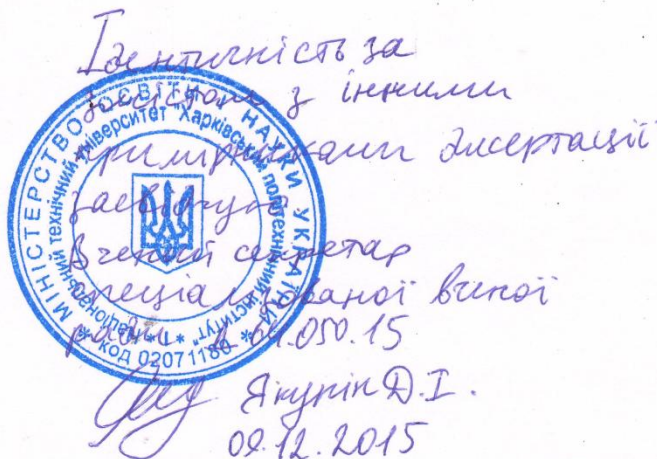 Ідентичність за
змістом з іншими
примірниками дисертації
засвідчую
Вчений секретар
спеціалізованої вченої
ради Д 64.050.15
Якунін Д.І.
09.12.2015
МІНІСТЕРСТВО ОСВІТИ І НАУКИ УКРАЇНИ
Національний технічний університет "Харківський політехнічний інститут"
* код 02071180 *